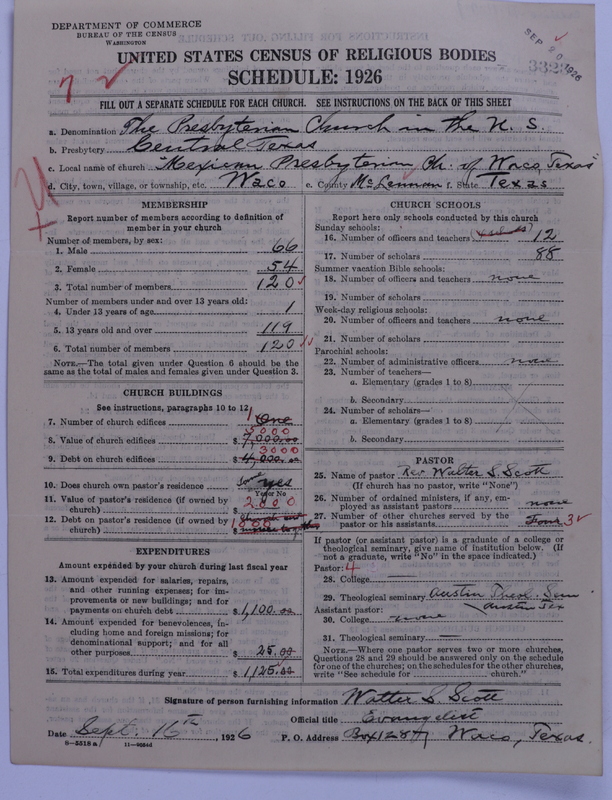 DEPARTMENT OF COMMERCE
BUREAU OF THE CENSUS
WASHINGTON
SEP 20 1926
UNITED STATES CENSUS OF RELIGIOUS BODIES
SCHEDULE: 1926
FILL OUT A SEPARATE SCHEDULE FOR EACH CHURCH. SEE INSTRUCTIONS ON THE BACK OF THIS SHEET
a. Denomination The Presbyterian Church in the U. S.
b. Presbytery Central Texas
c. Local name of church "Mexican Presbyterian Ch. of Waco, Texas"
d. City, town, village, or township, etc. Waco e. County McLennan f. State Texas
MEMBERSHIP
Report number of members according to definition of member in your church
Number of members, by sex:
1. Male 66
2. Female 54
3. Total number of members 120
Number of members under and over 13 years old:
4. Under 13 years of age 1
5. 13 years old and over 119
6. Total number of members 120
NOTE.—The total given under Question 6 should be the same as the total of males and females given under Question 3.
CHURCH BUILDINGS
See instructions, paragraphs 10 to 12
7. Number of church edifices 1 One
8. Value of church edifices $ 5000 7,000.00
9. Debt on church edifices $ 3000 4,000.00
10. Does church own pastor's residence yes
Yes or No
11. Value of pastor's residence (if owned by church) $ 2000
12. Debt on pastor's residence (if owned by church) $ 1000
EXPENDITURES
Amount expended by your church during last fiscal year
13. Amount expended for salaries, repairs, and other running expenses; for improvements or new buildings; and for payments on church debt $1,100.00
14. Amount expended for benevolences, including home and foreign missions; for denominational support; and for all other purposes $ 25.00
15. Total expenditures during year $ 1,125.00
CHURCH SCHOOLS
Report here only schools conducted by this church
Sunday schools:
16. Number of officers and teachers 12
17. Number of scholars 88
Summer vacation Bible schools:
18. Number of officers and teachers none
19. Number of scholars
Week-day religious schools:
20. Number of officers and teachers none
21. Number of scholars
Parochial schools:
22. Number of administrative officers none
23. Number of teachers—
a. Elementary (grades 1 to 8)
b. Secondary
24. Number of scholars—
a. Elementary (grades 1 to 8)
b. Secondary
PASTOR
25. Name of pastor Rev Walter S. Scott
(If church has no pastor, write "None")
26. Number of ordained ministers, if any, employed as assistant pastors none
27. Number of other churches served by the pastor or his assistants Four 3
If pastor (or assistant pastor) is a graduate of a college or theological seminary, give name of institution below. (If not a graduate, write "No" in the space indicated.)
Pastor: 4
28. College
29. Theological seminary Austin Theol. Sem
Austin Tex
Assistant pastor:
30. College none
31. Theological seminary
NOTE.—Where one pastor serves two or more churches, Questions 28 and 29 should be answered only on the schedule for one of the churches; on the schedules for the other churches, write "See schedule for church."
Signature of person furnishing information Walter S. Scott
Official title Evangelist
Date Sept. 16th, 1926 P. O. Address Box 128A, Waco, Texas.
8-5518a 11-9684d